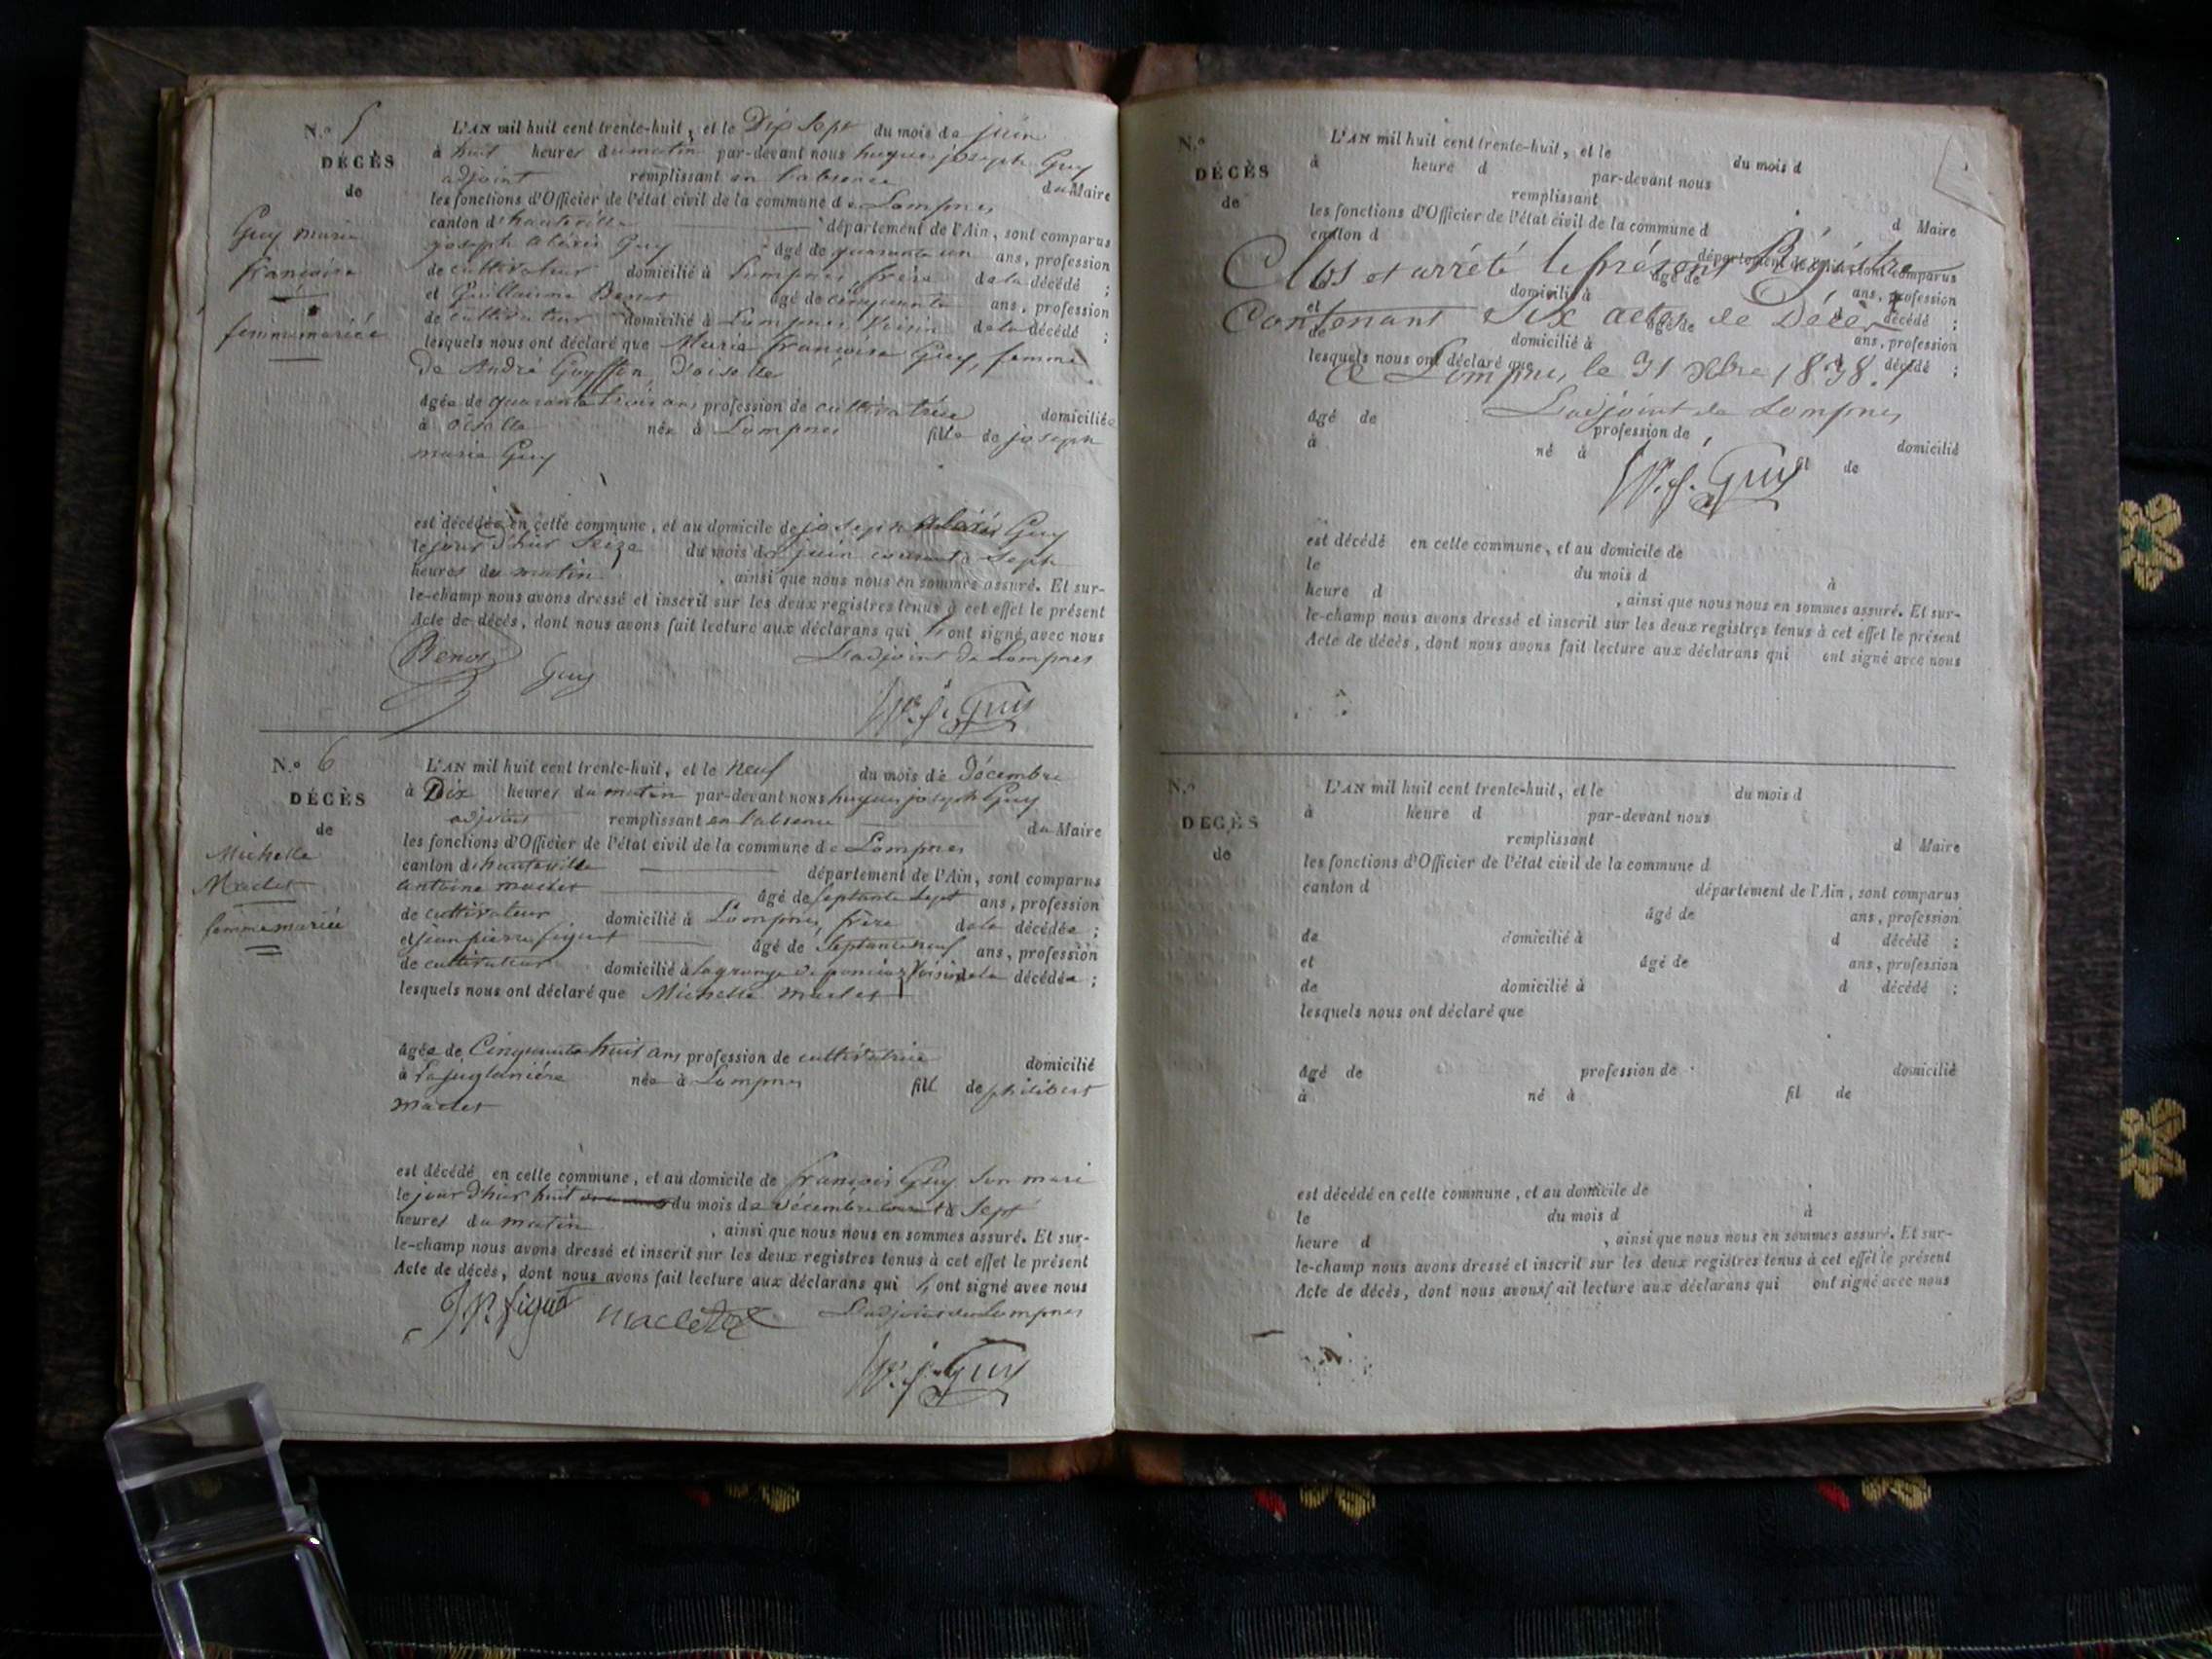 N.o 5
DÉCÈS
de
Guy marie
françoise
femme mariée
L'AN mil huit cent trente-huit, et le Dix Sept du mois de juin
à huit heures du matin par-devant nous hugues joseph Guy
adjoint remplissant en l'absence du Maire
les fonctions d'Officier de l'état civil de la commune de Lompnes
canton d'hauteville département de l'Ain, sont comparus
joseph alexis Guy âgé de quarante un ans, profession
de cultivateur domicilié à Lompnes frère de la décédé ;
et Guillaume Benot âgé de cinquante ans, profession
de cultivateur domicilié à Lompnes Voisin de la décédé ;
lesquels nous ont déclaré que Marie françoise Guy, femme
de André Guyffon d'oiselle
âgée de quarante trois ans profession de cultivatrice domiciliée
à oiselle née à Lompnes fille de joseph
marie Guy
est décédée en cette commune, et au domicile de joseph alexis Guy
le jour d'hier Seize du mois de juin courant à Seph
heures du matin , ainsi que nous nous en sommes assuré. Et sur-
le-champ nous avons dressé et inscrit sur les deux registres tenus à cet effet le présent
Acte de décès, dont nous avons fait lecture aux déclarans qui ont signé avec nous
L'adjoint de Lompnes
Benot Guy
h. j. Guy
N.o 6
DÉCÈS
de
Michelle
Maclet
femme mariée
L'AN mil huit cent trente-huit, et le neuf du mois de Décembre
à Dix heures du matin par-devant nous hugues joseph Guy
adjoint remplissant en l'absence du Maire
les fonctions d'Officier de l'état civil de la commune de Lompnes
canton d'hauteville département de l'Ain, sont comparus
antoine maclet âgé de septante sept ans, profession
de cultivateur domicilié à Lompnes, frère de la décédée ;
et jean pierre figuet âgé de septante neuf ans, profession
de cultivateur domicilié à la grange de Voisin de la décédée ;
lesquels nous ont déclaré que Michelle maclet
âgée de Cinquante huit ans profession de cultivatrice domicilié
à née à Lompnes fill de philibert
maclet
est décédé en cette commune, et au domicile de françois Guy Son mari
le jour d'hier huit du mois de décembre courant à Sept
heures du matin , ainsi que nous nous en sommes assuré. Et sur-
le-champ nous avons dressé et inscrit sur les deux registres tenus à cet effet le présent
Acte de décès, dont nous avons fait lecture aux déclarans qui ont signé avec nous
JP figuet maclet L'adjoint de Lompnes
h. j. Guy
N.o
DÉCÈS
de
L'AN mil huit cent trente-huit, et le du mois d
à heure d par-devant nous
remplissant d Maire
les fonctions d'Officier de l'état civil de la commune d
canton d département de l'Ain, sont comparus
Clos et arrêté le présent Régistre
âgé de ans, profession
domicilié à
Contenant Six actes de Décès
et âgé de décédé ;
de domicilié à ans, profession
lesquels nous ont déclaré que décédé ;
a Lompnes, le 31 Xbre 1838.
L'adjoint de Lompnes,
âgé de profession de domicilié
à né à fil de
h. j. Guy
est décédé en cette commune, et au domicile de
le du mois d à
heure d , ainsi que nous nous en sommes assuré. Et sur-
le-champ nous avons dressé et inscrit sur les deux registres tenus à cet effet le présent
Acte de décès, dont nous avons fait lecture aux déclarans qui ont signé avec nous
N.o
DÉCÈS
de
L'AN mil huit cent trente-huit, et le du mois d
à heure d par-devant nous
remplissant d Maire
les fonctions d'Officier de l'état civil de la commune d
canton d département de l'Ain, sont comparus
âgé de ans, profession
de domicilié à d décédé ;
et âgé de ans, profession
de domicilié à d décédé ;
lesquels nous ont déclaré que
âgé de profession de domicilié
à né à fil de
est décédé en cette commune, et au domicile de
le du mois d à
heure d , ainsi que nous nous en sommes assuré. Et sur-
le-champ nous avons dressé et inscrit sur les deux registres tenus à cet effet le présent
Acte de décès, dont nous avons fait lecture aux déclarans qui ont signé avec nous